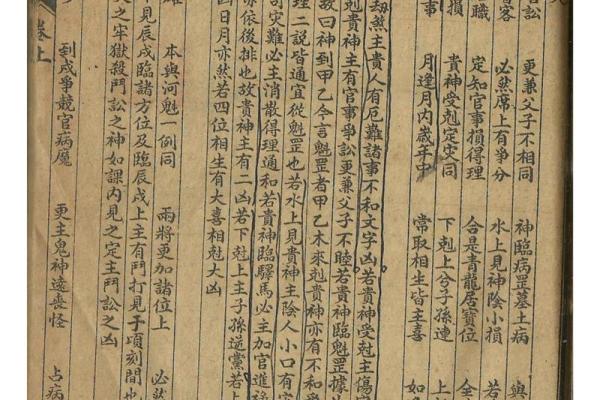 訟 更兼父子不相同 神臨病罡墓土病 與
客 必然席上有爭分 水上見神陰小損 若
職 定知官事損得理 合是青龍居寶位 全
損 貴神受剋定灾同 下剋上兮子孫連 上
事 月逢月内歲年中 常取相生皆主喜 如
劫煞主貴人有厄難諸事不和文字凶若貴神受尅主傷
剋貴神主有官事爭訟更兼父子不睦若貴神臨魁罡據
故曰神到甲乙今言魁罡者甲乙木來剋貴神亦有不和
理二說皆通宜從魁罡也若水上見貴神主陰人小口有
司灾難必主消散得理通和若貴神臨驛馬必主加官進
亦依後排也故貴神主有二凶若下剋上主子孫逆黨若上
四日月亦然若四位相生有大喜相尅大凶
雄 本與河魁一例同 兩將更加諸位上 必然
見辰戌臨諸方位及臨辰戌上主有鬥打見于頃刻間也
之牢獄殺鬥訟之神如課內見之定主鬥訟之凶
到戌爭競官病魔 更主鬼神遶喪怪 占病
卷上